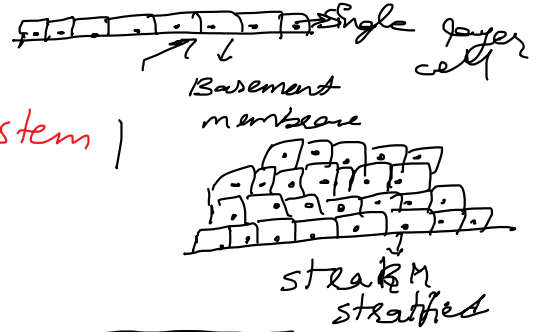 single layer
cell
Basement
membrane
stem
BM
stratified